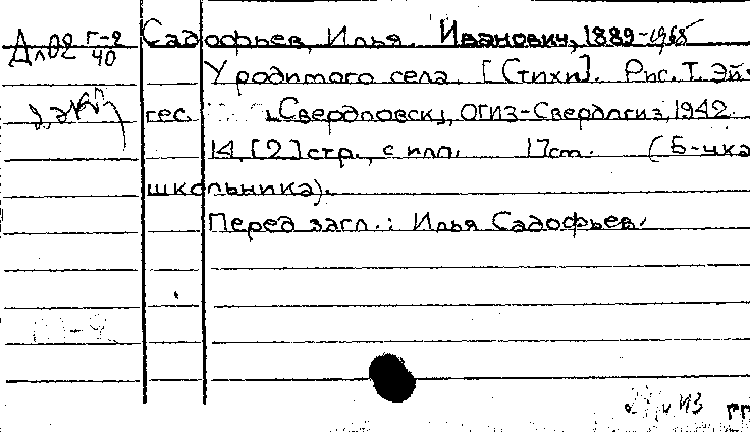 Дл02 Г-2/40 Садофьев, Илья Иванович, 1889-1965
У родимого села. [Стихи]. Рис. Т. Эй-
2 экз гес. [Свердловск], ОГИЗ-Свердлгиз, 1942.
14, [2] стр., с илл. 17 см. (Б-чка
школьника).
Перед загл.: Илья Садофьев.